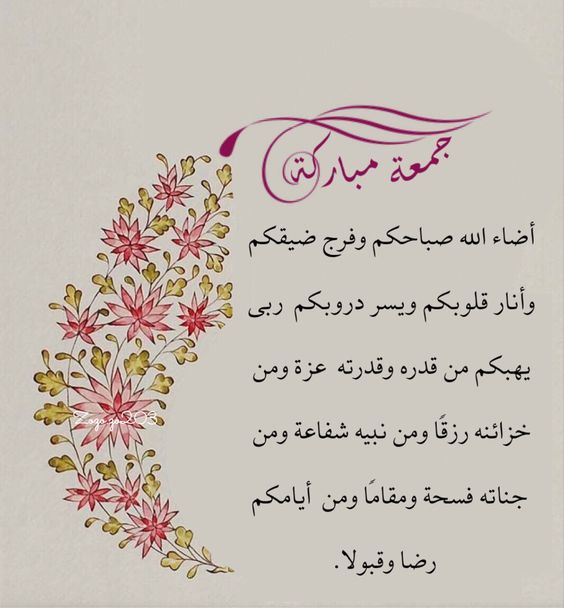 جمعة مباركة
أضاء الله صباحكم وفرج ضيقكم
وأنار قلوبكم ويسر دروبكم ربى
يهبكم من قدره وقدرته عزة ومن
خزائنه رزقًا ومن نبيه شفاعة ومن
جناته فسحة ومقامًا ومن أيامكم
رضا وقبولا.